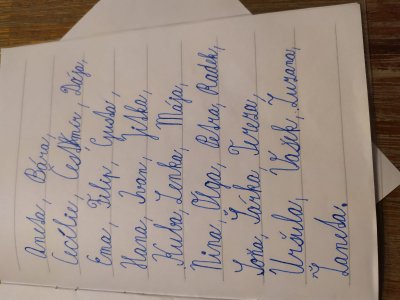 Aneta, Bára,
Cecílie, Čestmír, Dája,
Ema, Filip, Gusta,
Hana, Ivan, Jitka,
Kuba, Lenka, Mája,
Nina, Olga, Petra, Radek,
Soňa, Šárka, Tereza,
Uršula, Vašek, Zuzana,
Žaneta.